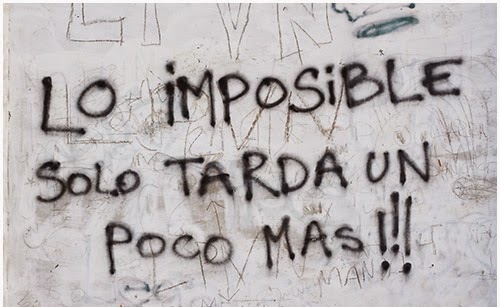 LO iMPOSiBLE
SOLO TARDA UN
POCO MAS!!!